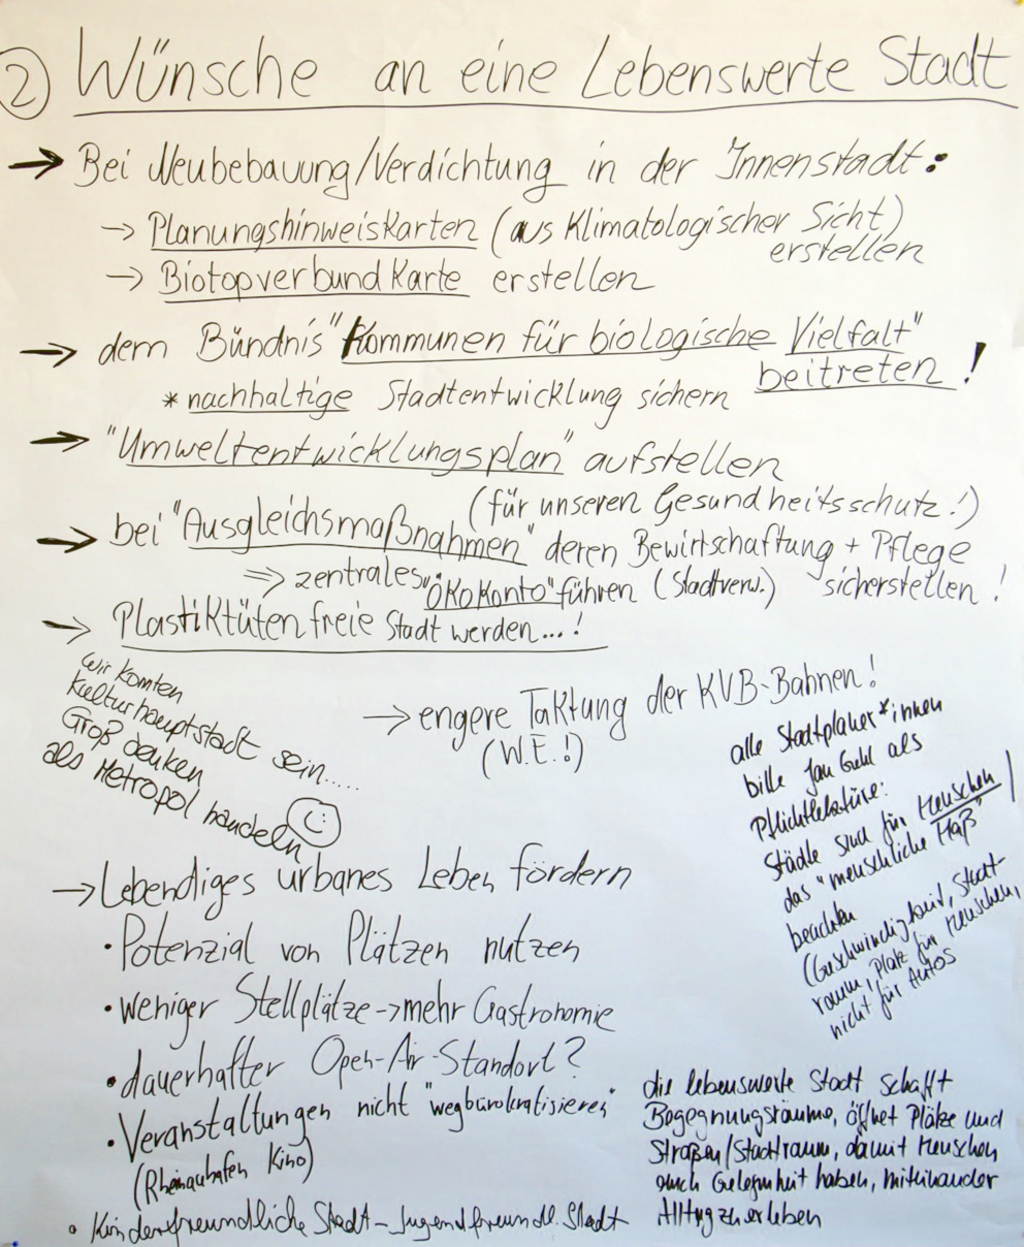 2) Wünsche an eine Lebenswerte Stadt
→ Bei Neubebauung/Verdichtung in der Innenstadt:
→ Planungshinweiskarten (aus Klimatologischer Sicht)
erstellen
→ Biotopverbundkarte erstellen
→ dem Bündnis "Kommunen für biologische Vielfalt"
beitreten!
* nachhaltige Stadtentwicklung sichern
→ "Umweltentwicklungsplan" aufstellen
(für unseren Gesundheitsschutz!)
→ bei "Ausgleichsmaßnahmen" deren Bewirtschaftung + Pflege
sicherstellen!
⇒ zentrales "Ökokonto" führen (Stadtverw.)
→ Plastiktütenfreie Stadt werden...!
Wir komten
Kulturhauptstadt sein....
Groß denken
als Metropol handeln
→ engere Taktung der KVB-Bahnen!
(W.E.!)
alle Stadtplaner*innen
bitte Jan Gehl als
Pflichtlektüre:
Städte sind für Menschen/
das "menschliche Maß"
beachten
(Geschwindigkeit, Stadt-
raum, Platz für Menschen,
nicht für Autos
→ Lebendiges urbanes Leben fördern
• Potenzial von Plätzen nutzen
• weniger Stellplätze → mehr Gastronomie
• dauerhafter Open-Air-Standort?
• Veranstaltungen nicht "wegbürokratisieren"
(Rheinauhafen Kino)
• Kinderfreundliche Stadt - Jugendfreundl. Stadt
die lebenswerte Stadt schafft
Begegnungsräume, öffnet Plätze und
Straßen/Stadtraum, damit Menschen
auch Gelegenheit haben, miteinander
Alltag zu erleben